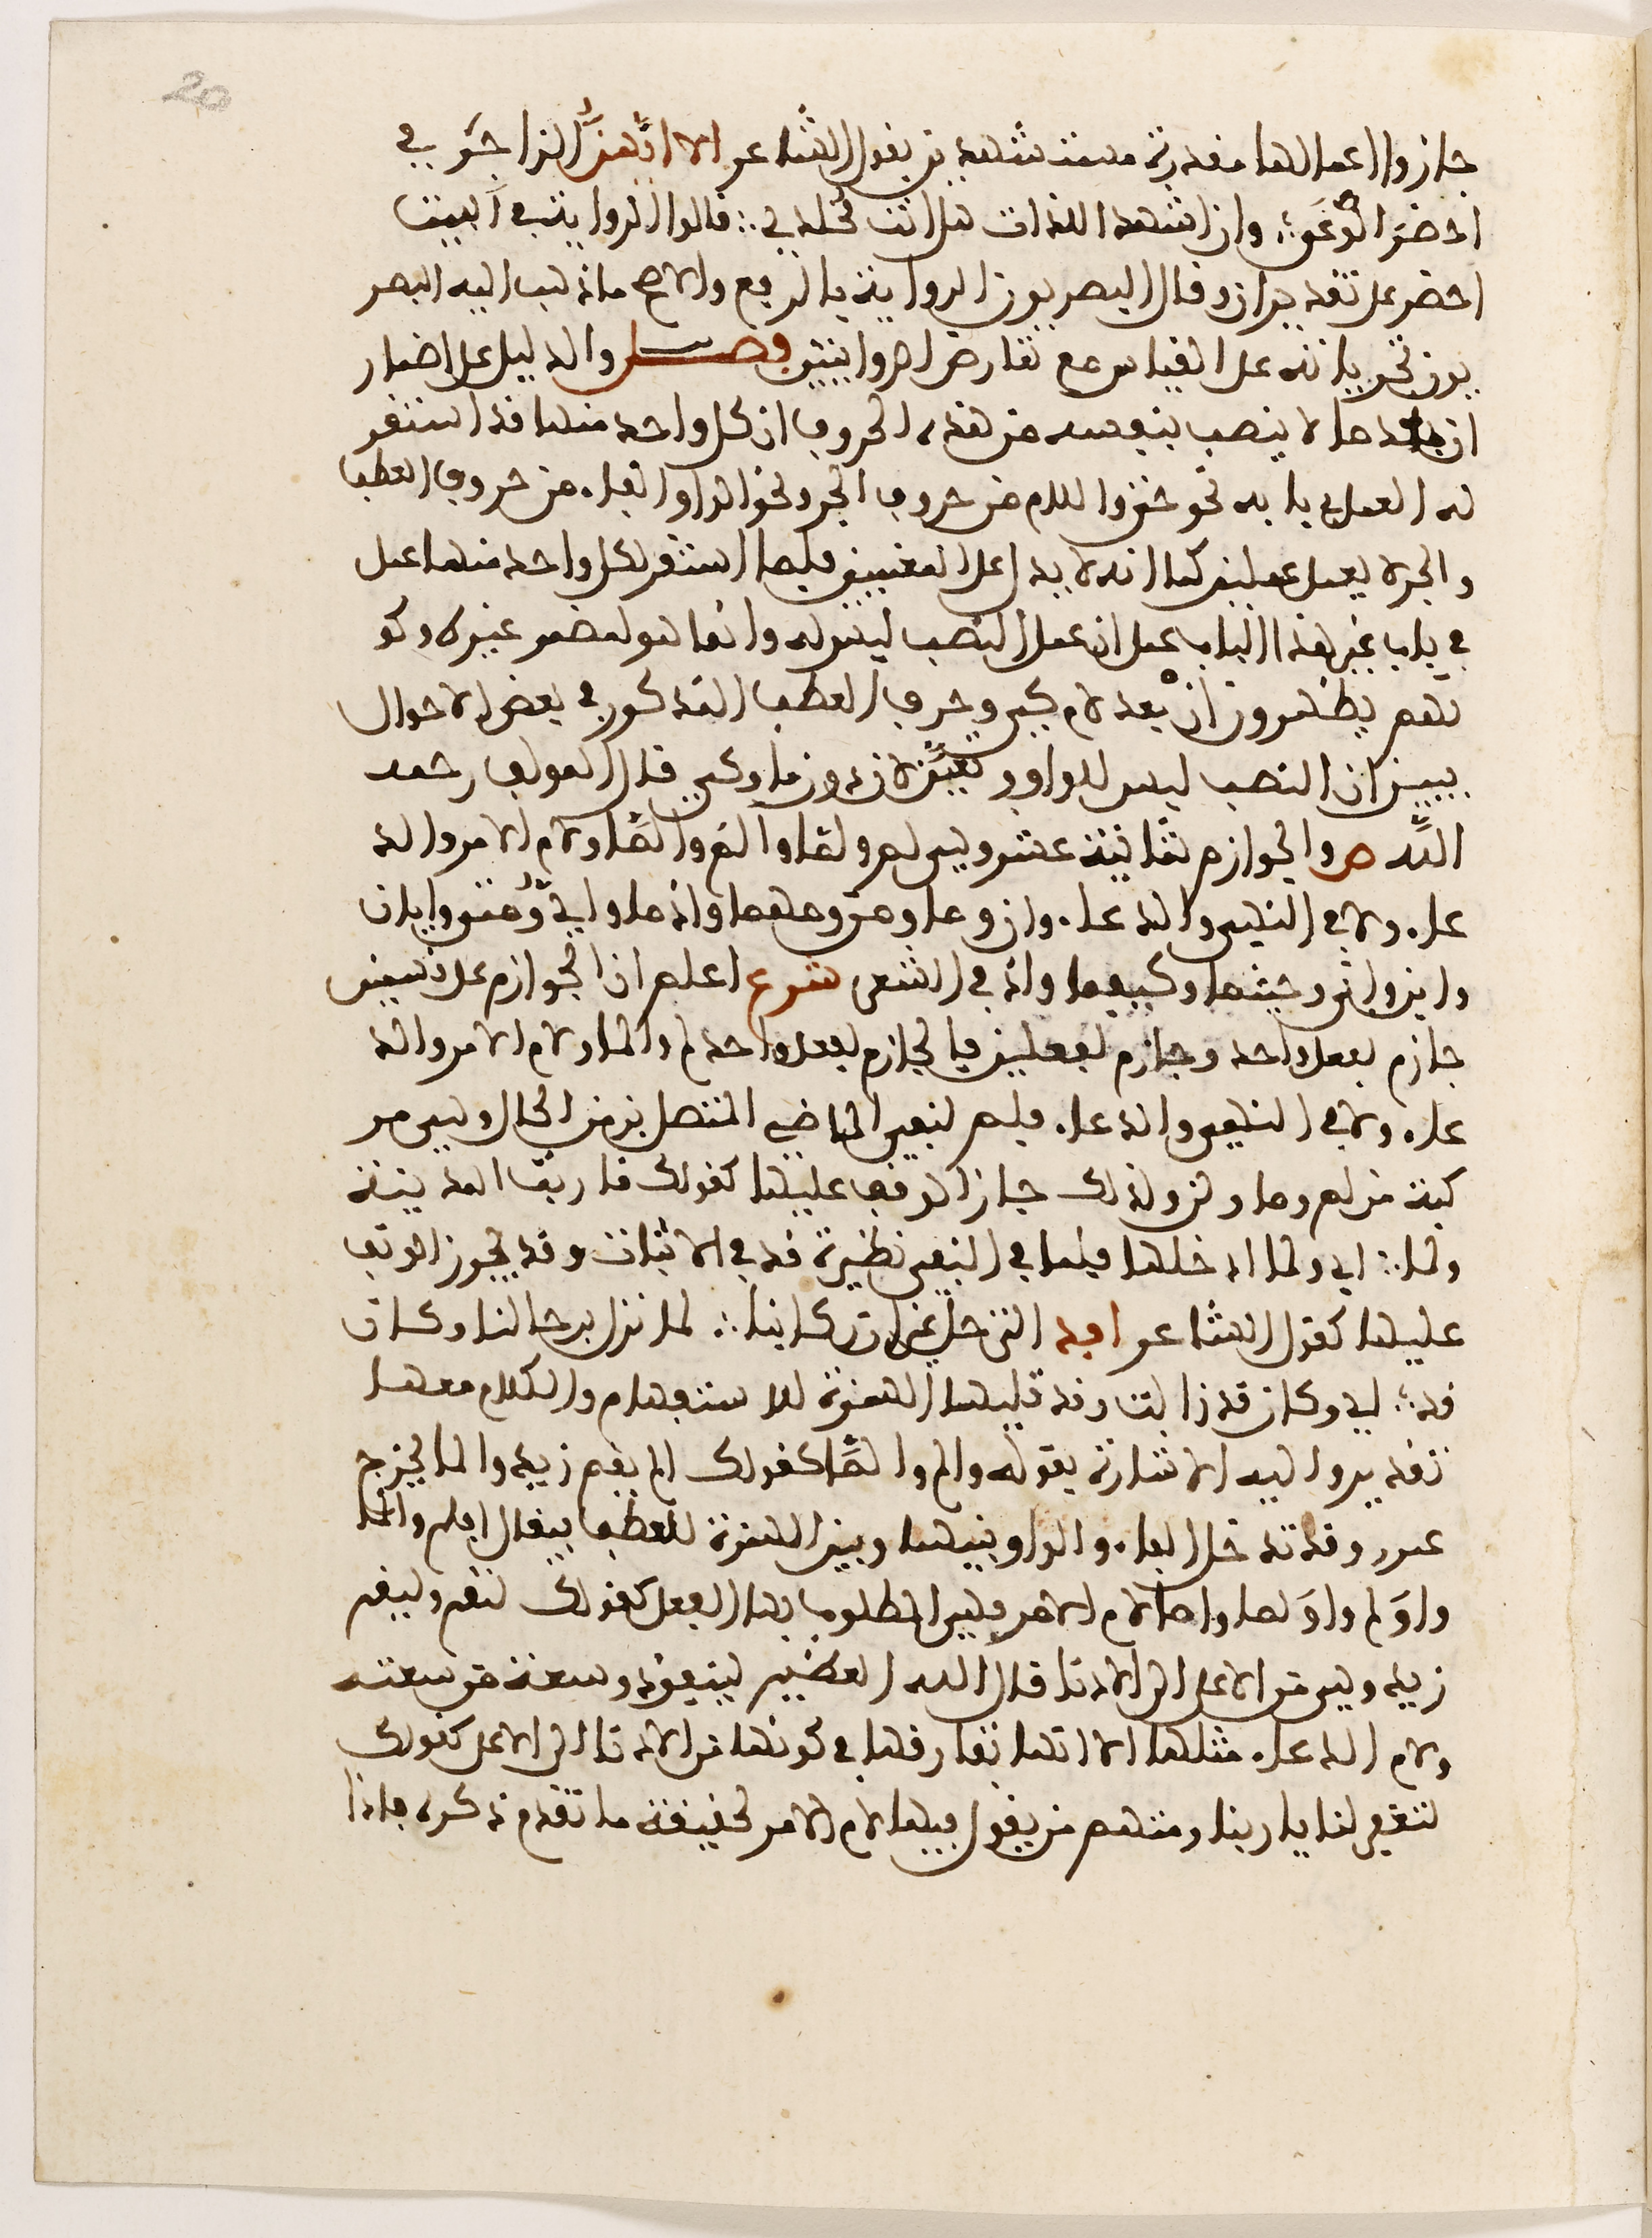 20
جازوا اعمالها مقدرة مستشهدين بقول الشاعر الا ايهذا الزاجري
احضر الوغى ؛ وان اشهد اللذات هل انت مخلدي ∴ قالوا الرواية في البيت
احضر على تقدير ان وقال البصريون الرواية بالرفع والاصح ما ذهب اليه البصر
يون لجريانه على القياس مع تعارض الروايتين فصل والدليل على اضمار
ان بعد ما لا ينصب بنفسه من هذه الحروف ان كل واحد منها قد استقر
له العمل في بابه نحو حتى واللام من حروف الجر ونحو الواو والفاء من حروف العطف
والحرف لا يعمل عملين كما انه لا يدل على المعنيين فلما استقر لكل واحد منهما عمل
في باب غير هذا الباب علم ان عمل النصب ليس له وانما هو لمضمر غيره وكو
نهم يظهرون ان بعد لام كي وحرف العطف المذكور في بعض الاحوال
يبين ان النصب ليس للواو و لان دون ما وكي قال المولف رحمه
الله ص والجوازم ثمانية عشر وهي لم ولما والم والما ولام الامر والد
عاء ولا في النهي والدعاء وان وما ومن ومهما واذ ما واي ومتى وايان
واين وانى وحيثما وكيفما واذا في الشعر شرع اعلم ان الجوازم على قسمين
جازم لفعل واحد وجازم لفعلين فالجازم لفعل واحد لم ولما ولام الامر والد
عاء ولا في النهي والدعاء فلم لنفي الماضي المتصل بزمن الحال وهي مر
كبة من لم وما ولن ولذلك جاز الوقف عليها كقولك قاربت المدينة
ولما ∴ اي ولما ادخلها فلما في النفي نظيرة قد في الاثبات وقد يجوز الوقف
عليها كقول الشاعر افد الترحل غير ان ركابنا ∴ لما تزل برحالنا وكان
قد ؛ اي وكان قد زالت وقد تليها الهمزة للاستفهام والكلام معها
تقديرواليه الاشارة بقوله والم والما كقولك الم يقم زيد والما يخرج
عمرو وقد تدخل الفاء والواو بينها وبين الهمزة للعطف فيقال افلم وافلما
واولم واولما واما لام الامر فهي المطلوب بها الفعل كقولك لتقم وليقم
زيد وهي من الاعلى الى الادنا قال الله العظيم لينفق ذو سعة من سعته
ولام الدعاء مثلها الا انها تفارقها في كونها من الادنا الى الاعلى كقولك
لتغفر لنا يا ربنا ومنهم من يقول فيها لام الامر لحقيقة ما تقدم ذكره فاذا